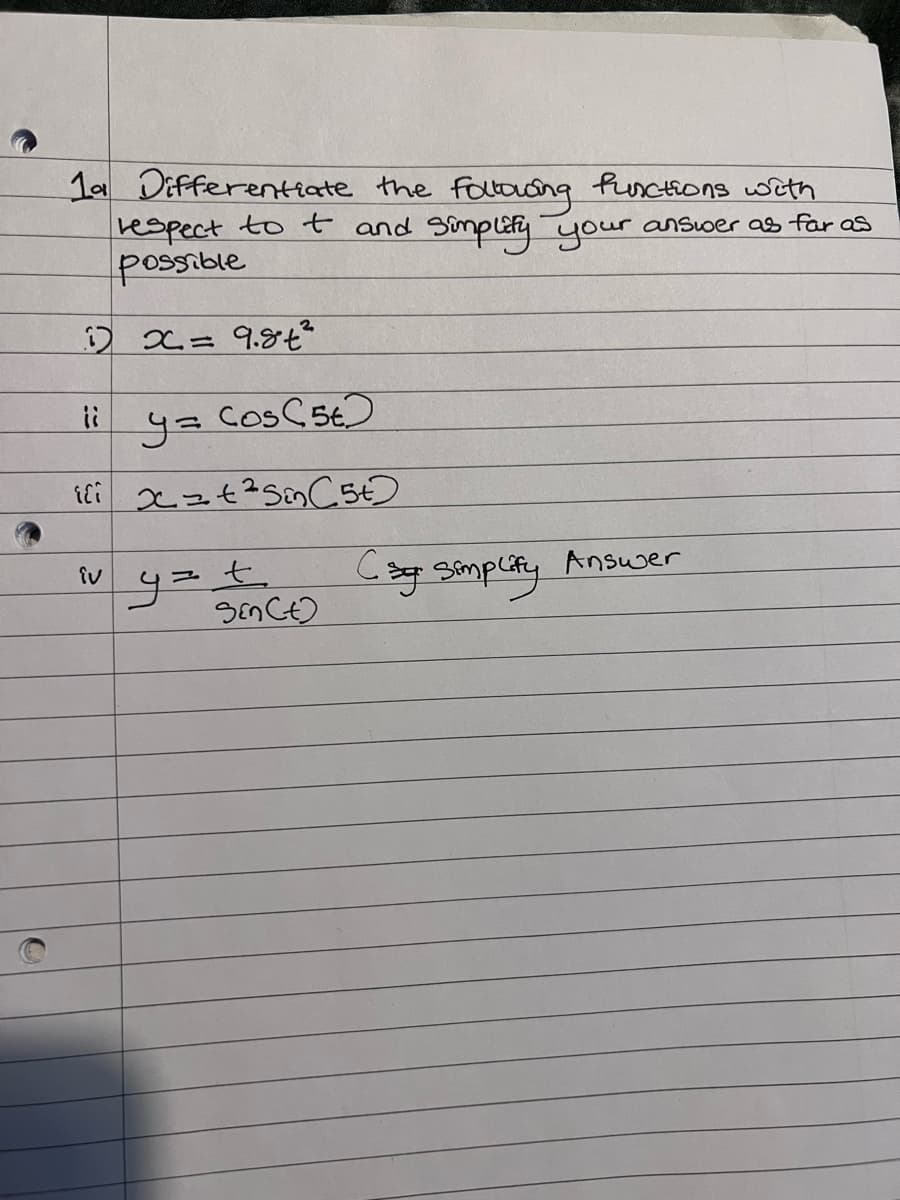 1a Differentiate the following functions with
respect to t and simplify your answer as far as
possible
i) x = 9.8t²
ii y = cos(5t)
iii x = t² sin(5t)
iv y = t/sin(t) ( simplify Answer